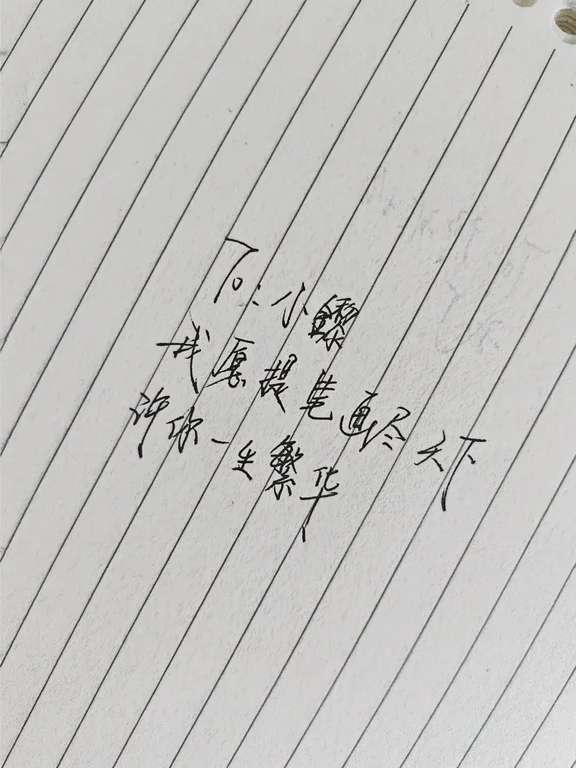 To:小黎
我愿提笔画尽天下
许你一生繁华